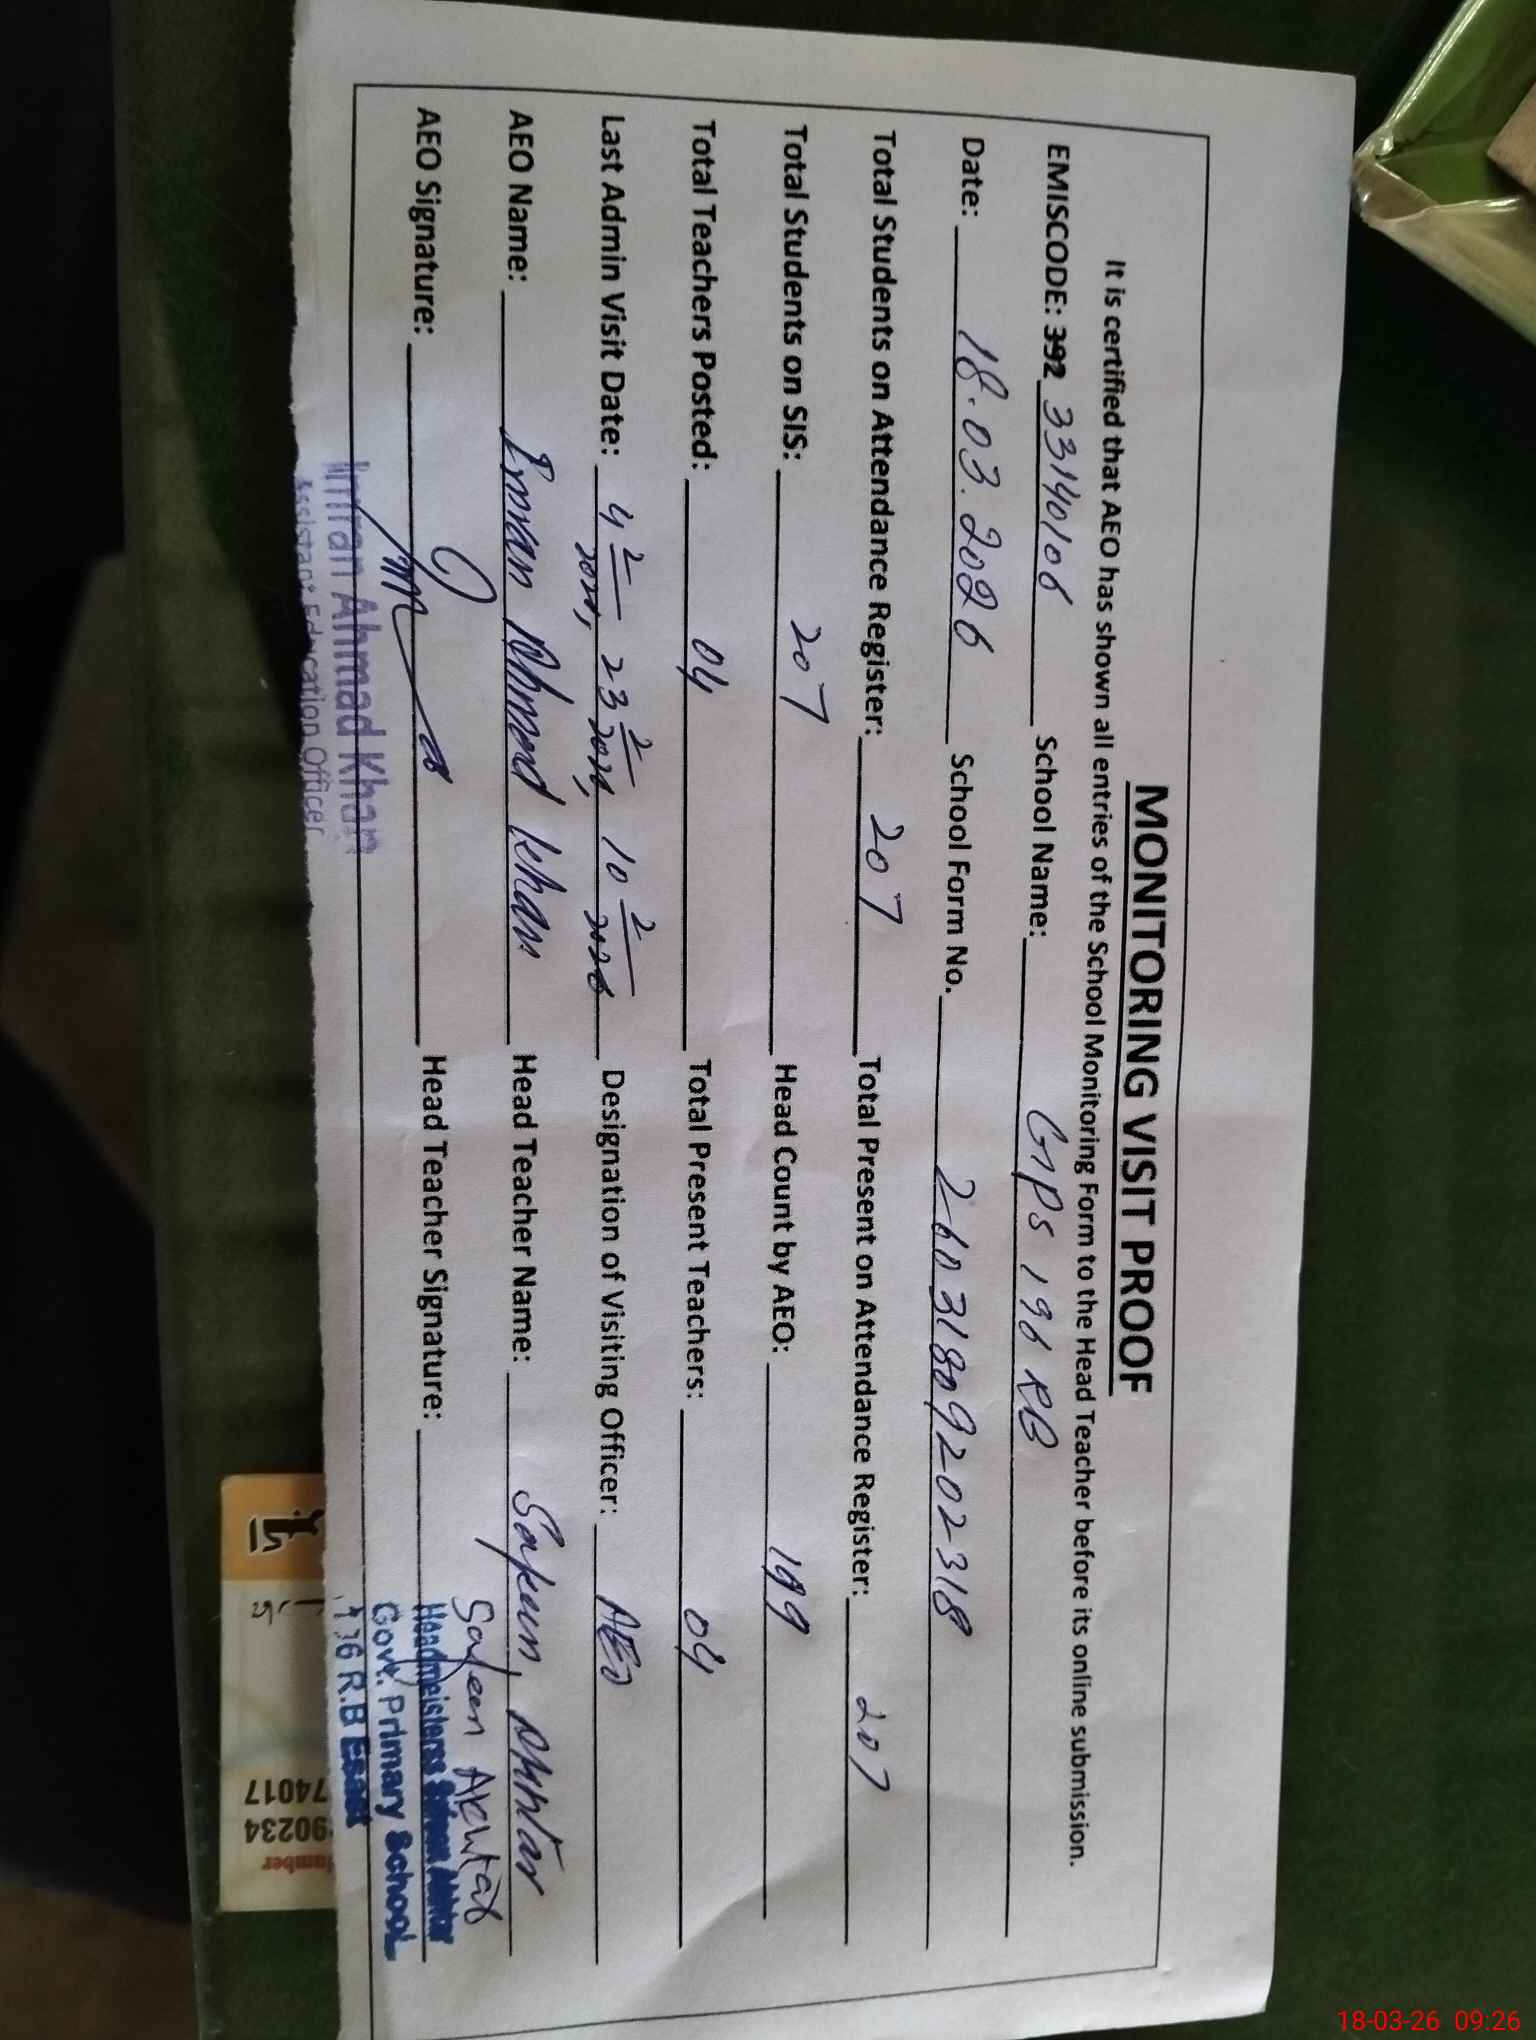 MONITORING VISIT PROOF
It is certified that AEO has shown all entries of the School Monitoring Form to the Head Teacher before its online submission.
EMISCODE: 392 33140106 School Name: GPS 196 RB
Date: 18.03.2026 School Form No. 26031809202318
Total Students on Attendance Register: 207 Total Present on Attendance Register: 207
Total Students on SIS: 207 Head Count by AEO: 199
Total Teachers Posted: 04 Total Present Teachers: 04
Last Admin Visit Date: 4 2/2026, 23 2/2026, 10 2/2026 Designation of Visiting Officer: AEO
AEO Name: Imran Ahmad Khan Head Teacher Name: Akhtar
AEO Signature: Head Teacher Signature: Akhtar
Imran Ahmad Khan
Assistant Education Officer
Headmistress Akhtar
Govt. Primary School
R.B
74017
90234
18-03-26 09:26